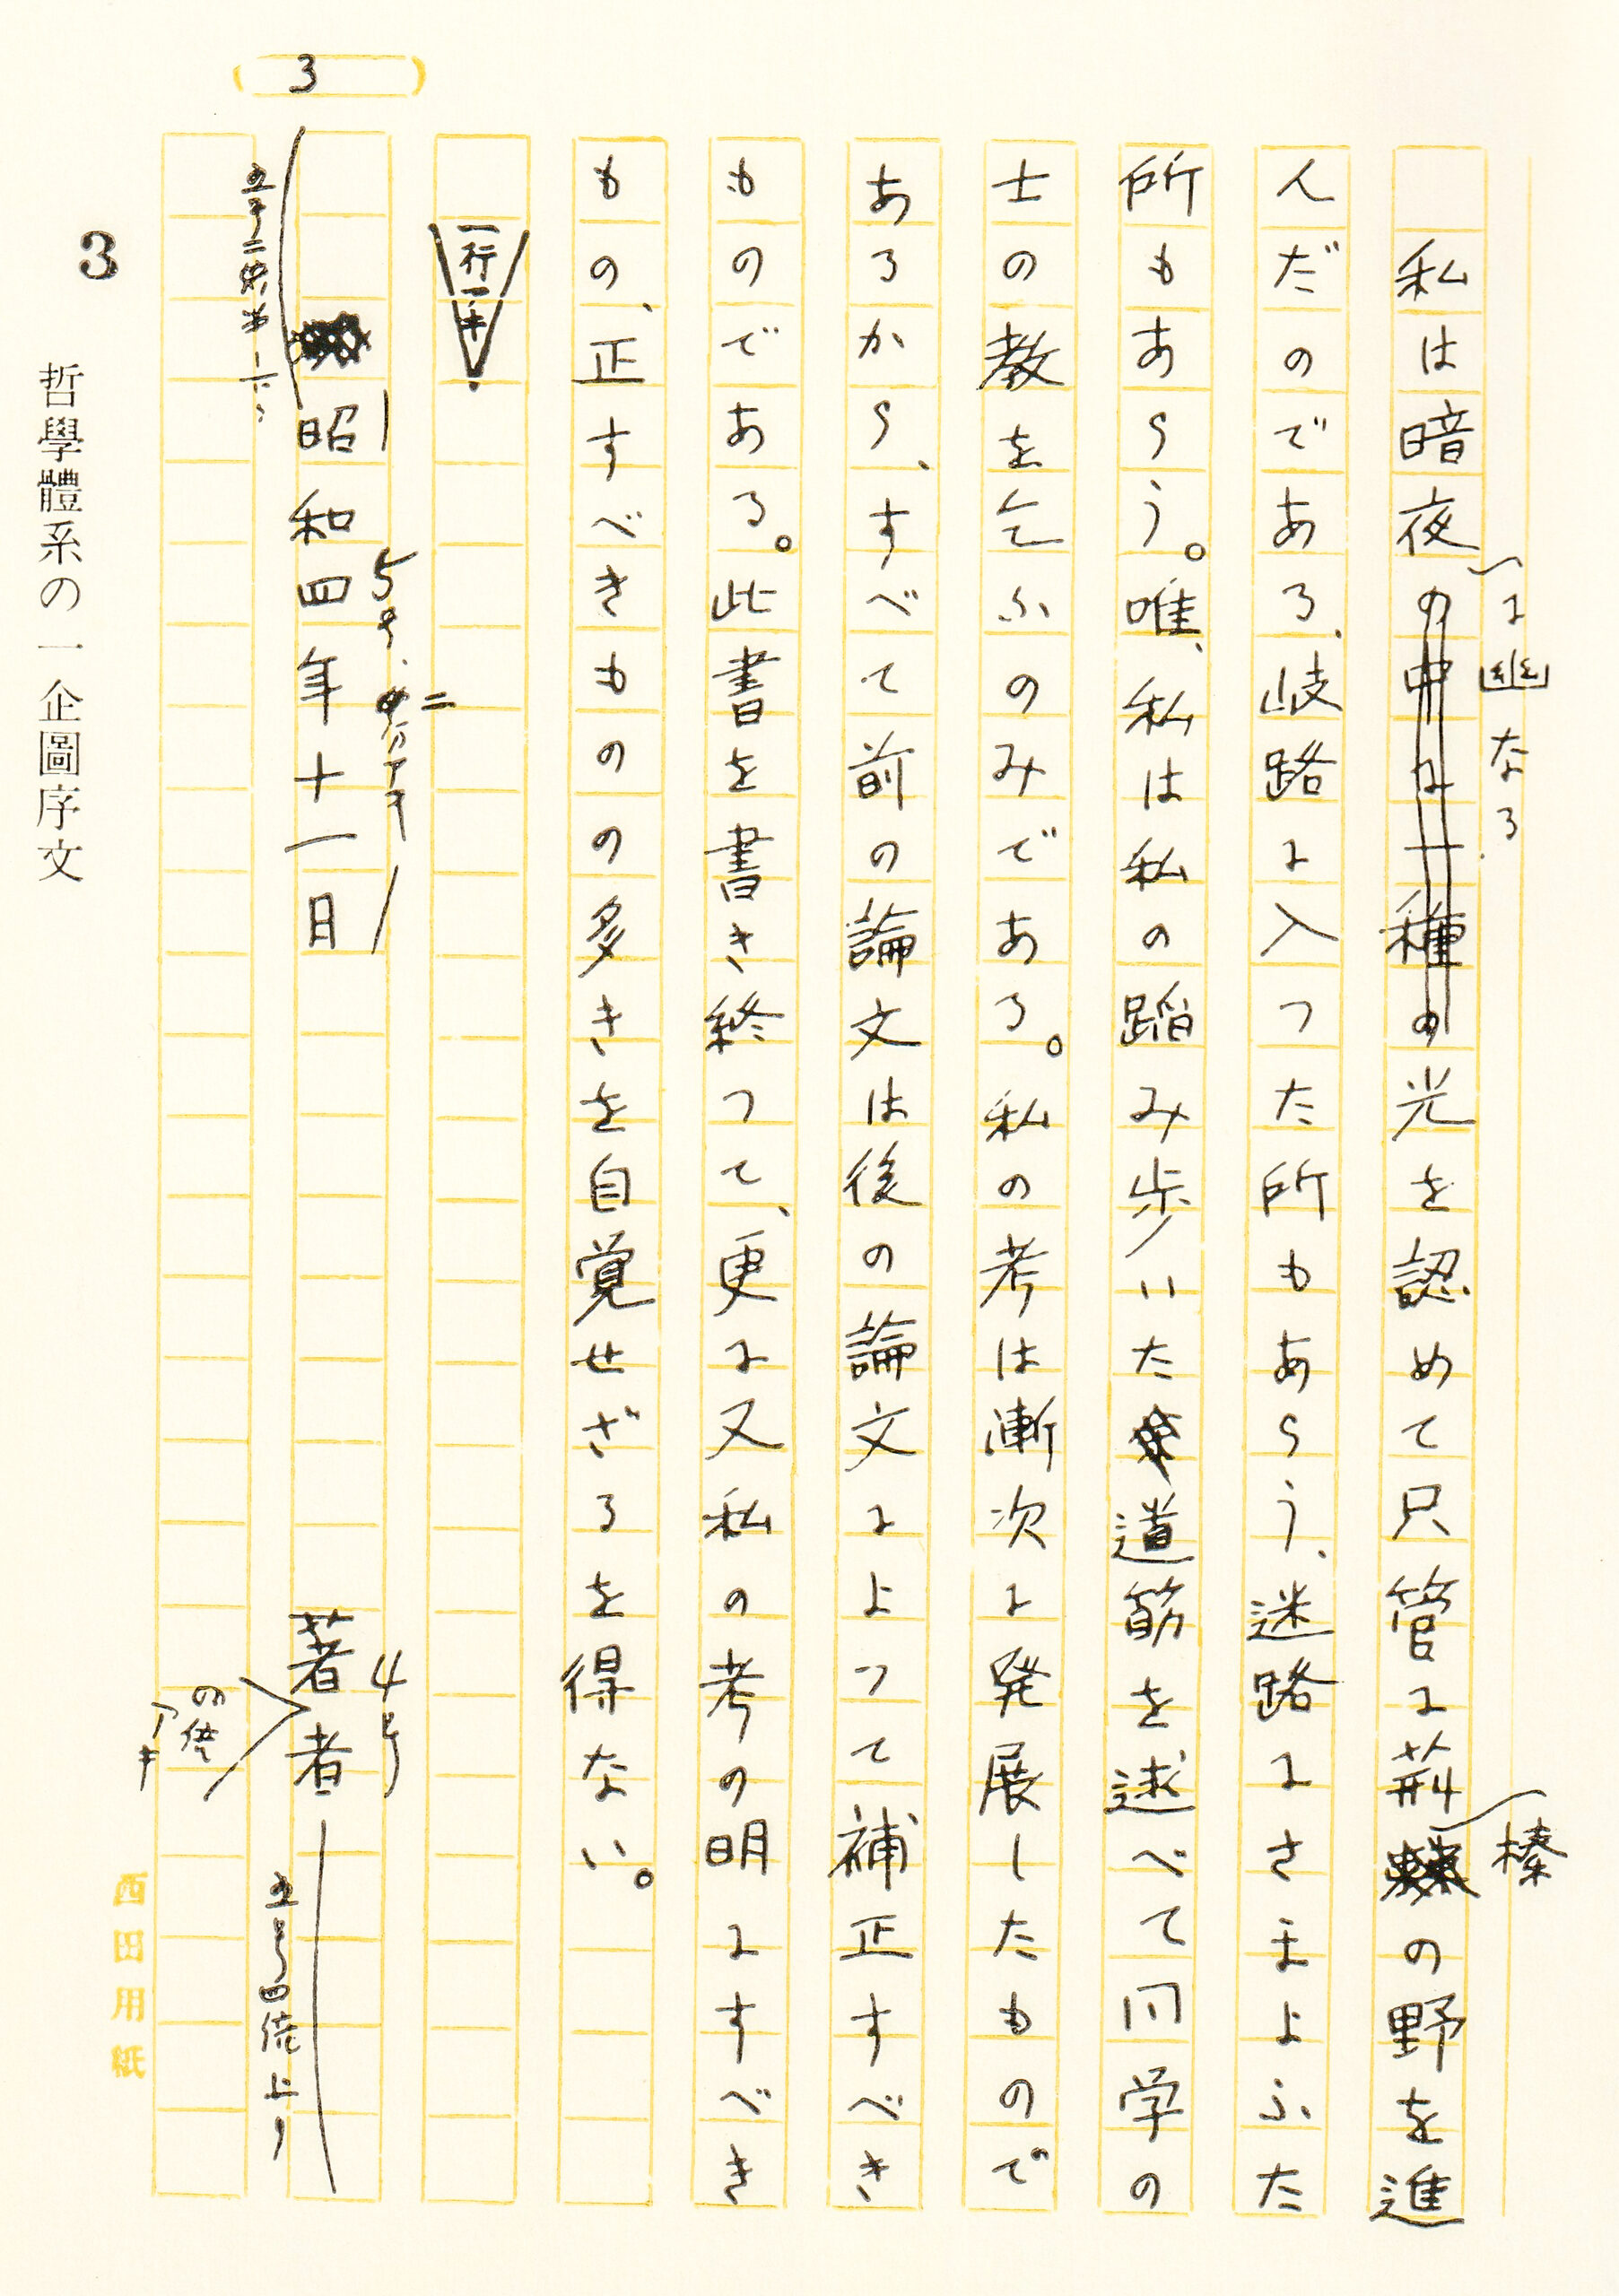 3
に幽なる
榛
私は暗夜の中に一種の光を認めて只管に荊の野を進
んだのである、岐路に入つた所もあらう、迷路にさまよふた
所もあらう。唯、私は私の蹈み歩いた道筋を述べて同学の
士の教を乞ふのみである。私の考は漸次に発展したもので
あるから、すべて前の論文は後の論文によつて補正すべき
ものである。此書を書き終つて、更に又私の考の明にすべき
もの、正すべきものの多きを自覚せざるを得ない。
昭和四年十一月 著者
4号
西田用紙
3
哲學體系の一企圖序文